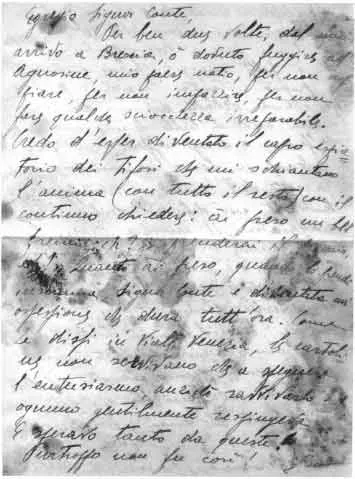 Egregio Signor Conte,
Per ben due volte, dal mio
arrivo a Brescia, ò dovuto fuggire ad
Agnosine, mio paese natio, per non
per non impazzire, per non
fare qualche sciocchezza irreparabile.
Credo d'esser diventato il capro espia=
torio dei tifosi che mi schiantano
l'anima (con tutto il resto) con il
continuo chiedere: ài preso un bel
premio, eh?
quanto ài preso, quando
Conte è diventata un'
ossessione che dura tutt'ora. Come
e dissi in Viale Venezia, le cartoli
ne non servivano che a spegnere
l'entusiasmo, anziché ravvivarlo e
ognuno gentilmente respingeva
E speravo tanto da queste!
Purtroppo non fu così!